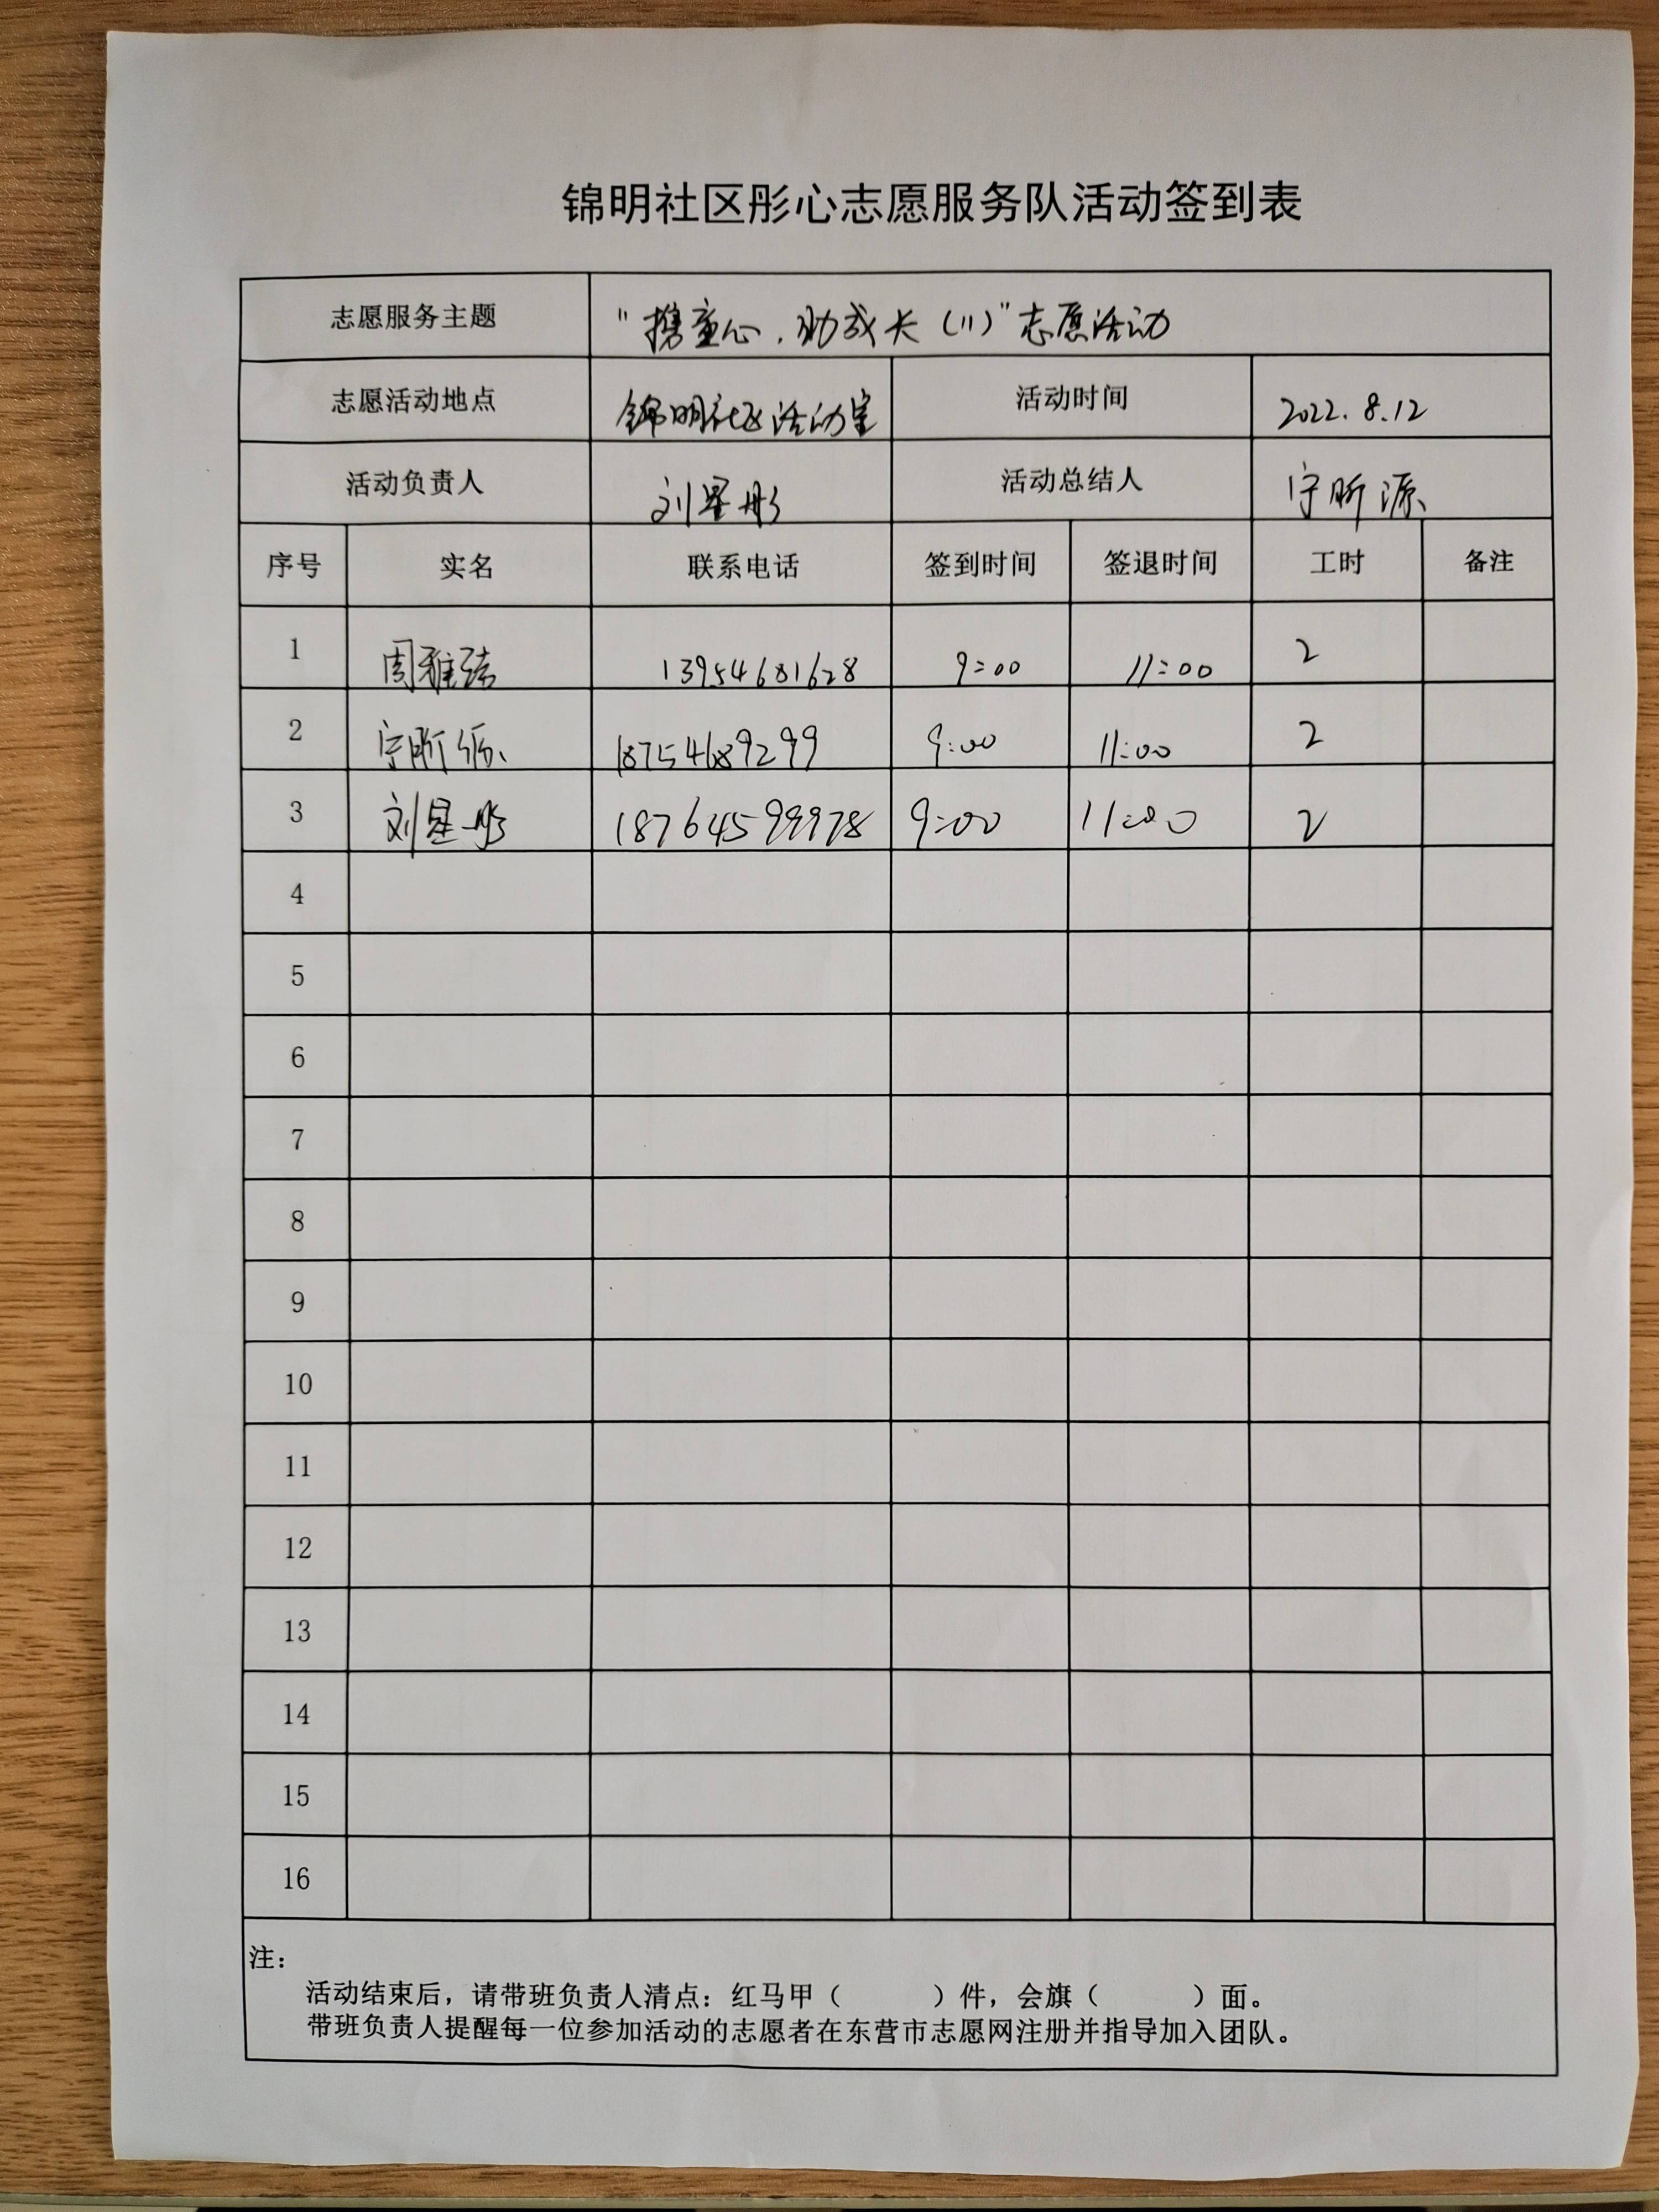 锦明社区彤心志愿服务队活动签到表
志愿服务主题 "携童心，助成长（11）"志愿活动
志愿活动地点 锦明社区活动室 活动时间 2022.8.12
活动负责人 刘星彤 活动总结人 宁昕源
序号 实名 联系电话 签到时间 签退时间 工时 备注
1 周雅洁 13954681628 9:00 11:00 2
2 宁昕源 18754689299 9:00 11:00 2
3 刘星彤 18764599978 9:00 11:00 2
4
5
6
7
8
9
10
11
12
13
14
15
16
注：
活动结束后，请带班负责人清点：红马甲（ ）件，会旗（ ）面。
带班负责人提醒每一位参加活动的志愿者在东营市志愿网注册并指导加入团队。